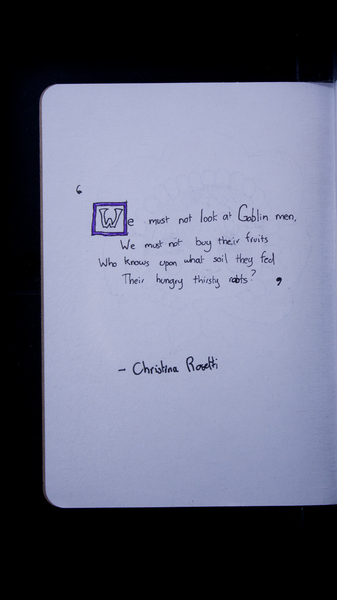 ‘We must not look at Goblin men,
We must not buy their fruits
Who knows upon what soil they fed
Their hungry thirsty roots?’
- Christina Rosetti